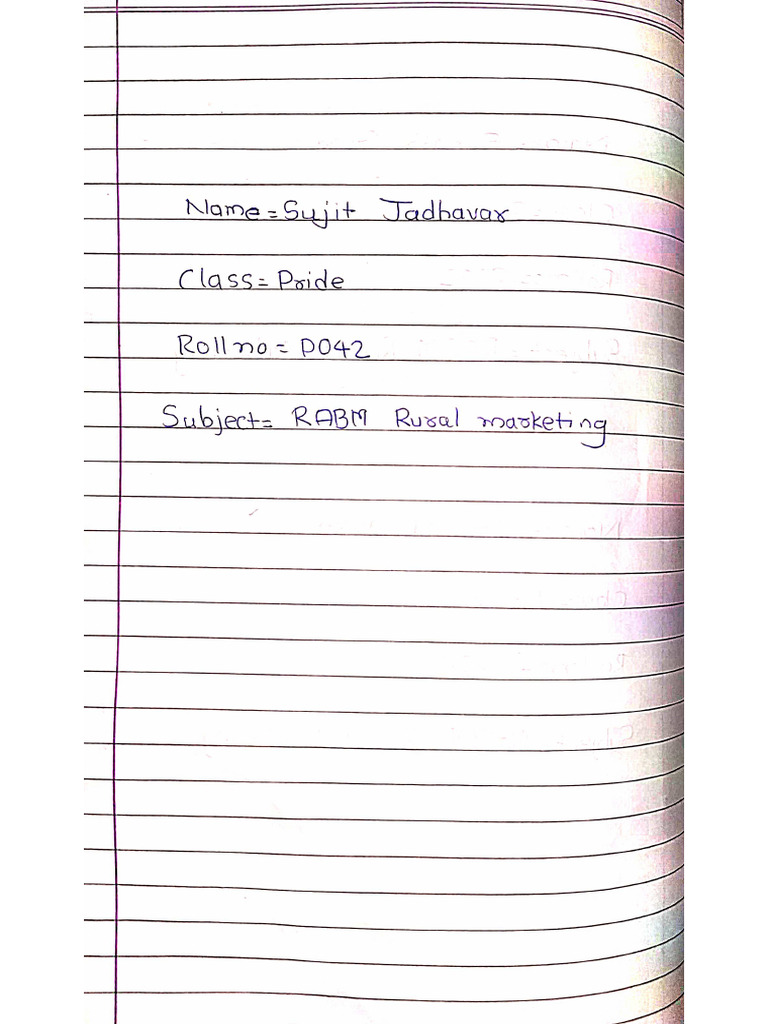 Name = Sujit Jadhavar
Class = Pride
Roll no = P042
Subject = RABM Rural marketing